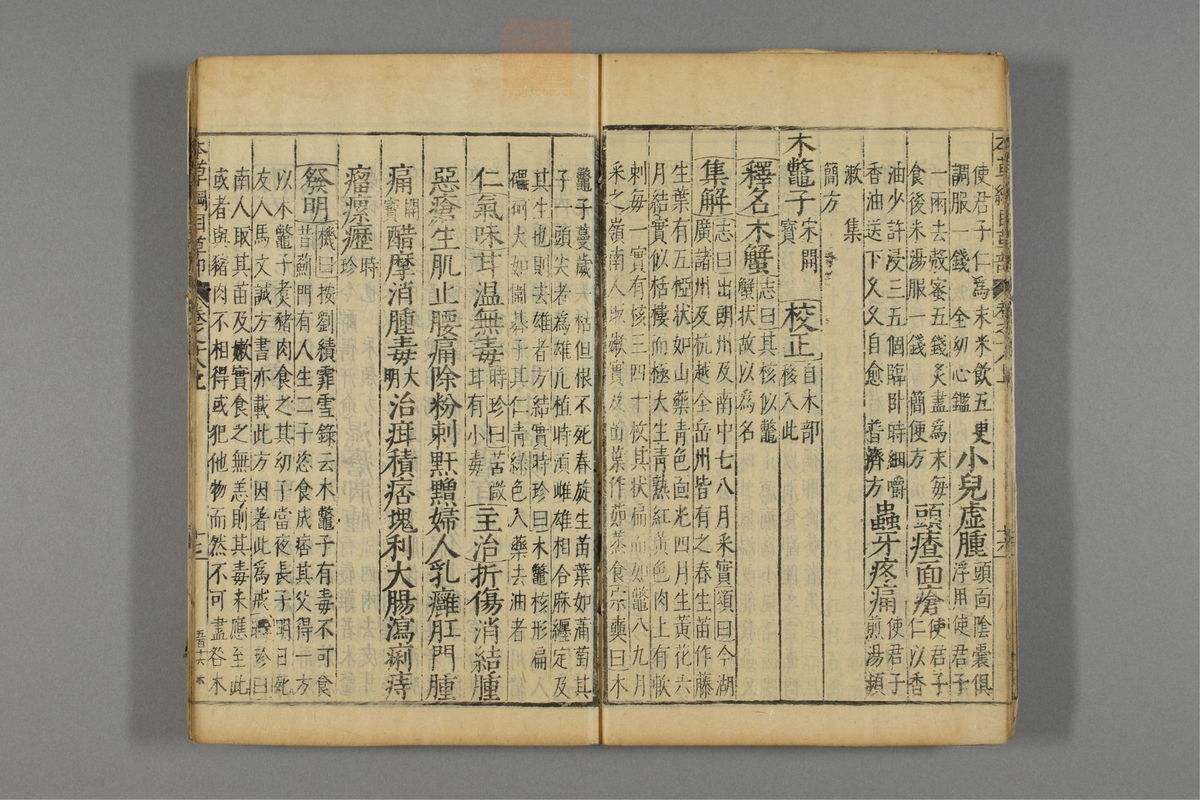 使君子仁爲末米飲五更
調服一錢全幼心鑑
小兒虛腫
頭面陰囊俱
浮用使君子
一兩去殼蜜五錢炙盡爲末每
食後米湯服一錢簡便方
頭瘡面瘡
使君子
仁以香
油少許浸三五個臨卧時細嚼
香油送下久久自愈 普濟方
蟲牙疼痛
使君子
煎湯頻
漱 集
簡方
木鼈子宋開寶 校正自木部移入此
釋名木蟹志曰其核似鼈蟹狀故以爲名
集解志曰出朗州及南中七八月采實頌曰今湖
廣諸州及杭越全岳州皆有之春生苗作藤
生葉有五椏狀如山藥青色面光四月生黃花六
月結實似栝樓而極大生青熟紅黃色肉上有軟
刺每一實有核三四十枚其狀扁而如鼈八九月
采之嶺南人取嫩實及苗葉作茹蒸食宗奭曰木
鼈子蔓歲一枯但根不死春旋生苗葉如蒲萄其
子一頭尖者爲雄凡植時須雌雄相合麻纏定及
其生也則去雄者方結實時珍曰木鼈核形扁
礧砢大如圍棊子其仁青綠色入藥去油者
仁氣味甘溫無毒時珍曰苦微甘有小毒主治折傷消結腫
惡瘡生肌止腰痛除粉刺䵟𪒟婦人乳癰肛門腫
痛開寶醋摩消腫毒大明治疳積痞塊利大腸瀉痢痔
瘤瘰癧時珍
發明機曰按劉績霏雪錄云木鼈子有毒不可食
昔薊門有人生二子恣食成痞其父得一方
以木鼈子煮豬肉食之其幼子當夜長子明日死
友人馬文誠方書亦載此方因著此爲戒時珍曰
南人取其苗及嫩實食之無恙則其毒未應至此
或者與豬肉不相得或犯他物而然不可盡咎木
本草綱目草部 卷之十八上
五百十六 本